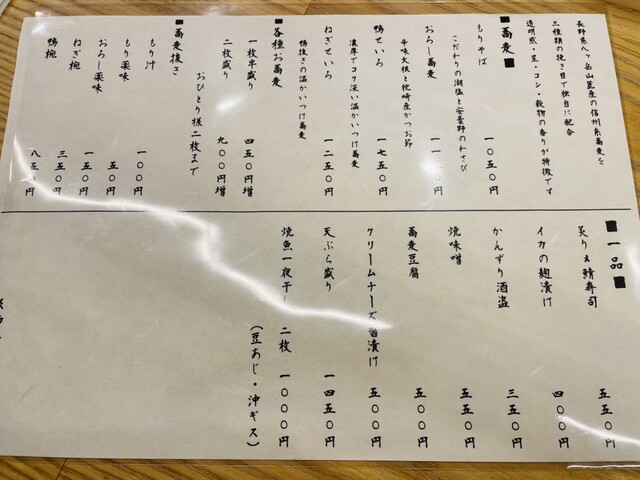 長野県八ヶ岳山麓産の信州系蕎麦を
三種類の挽き目で独自に配合
透明感・星・コシ・穀物の香りが特徴です
■蕎麦■
もりそば 一〇五〇円
こだわりの湖塩と安曇野のわさび
おろし蕎麦
辛味大根と枕崎産かつお節
鴨せいろ 一七五〇円
濃厚でコク深い温かいつけ蕎麦
ねぎせいろ 一二五〇円
鴨抜きの温かいつけ蕎麦
■各種お蕎麦
一枚半盛り 四五〇円増
二枚盛り 九〇〇円増
おひとり様二枚まで
■蕎麦抜き
もり汁 一〇〇円
もり薬味 五〇円
おろし薬味 一五〇円
ねぎ椀 三五〇円
鴨椀 八五〇円
■一品■
炙り〆鯖寿司 五五〇円
イカの麹漬け 四〇〇円
かんずり酒盗 三五〇円
焼味噌 五五〇円
蕎麦豆腐 五五〇円
クリームチーズ 漬け 五〇〇円
天ぷら盛り 一四五〇円
焼魚一夜干し 二枚 一〇〇〇円
(豆あじ・沖ギス)